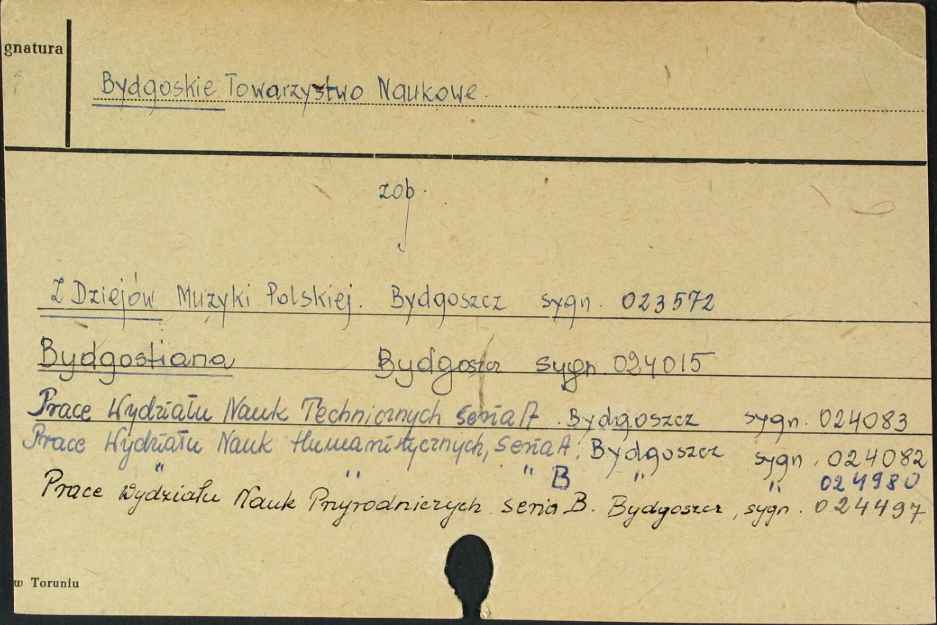 gnatura
Bydgoskie Towarzystwo Naukowe.
zob.
Z Dziejów Muzyki Polskiej. Bydgoszcz sygn. 023572
Bydgostiana Bydgoszcz sygn. 024015
Prace Wydziału Nauk Technicznych Seria A. Bydgoszcz sygn. 024083
Prace Wydziału Nauk Humanistycznych, Seria A. Bydgoszcz sygn. 024082
" " " B " " 024980
Prace Wydziału Nauk Przyrodniczych seria B. Bydgoszcz, sygn. 024497.
w Toruniu